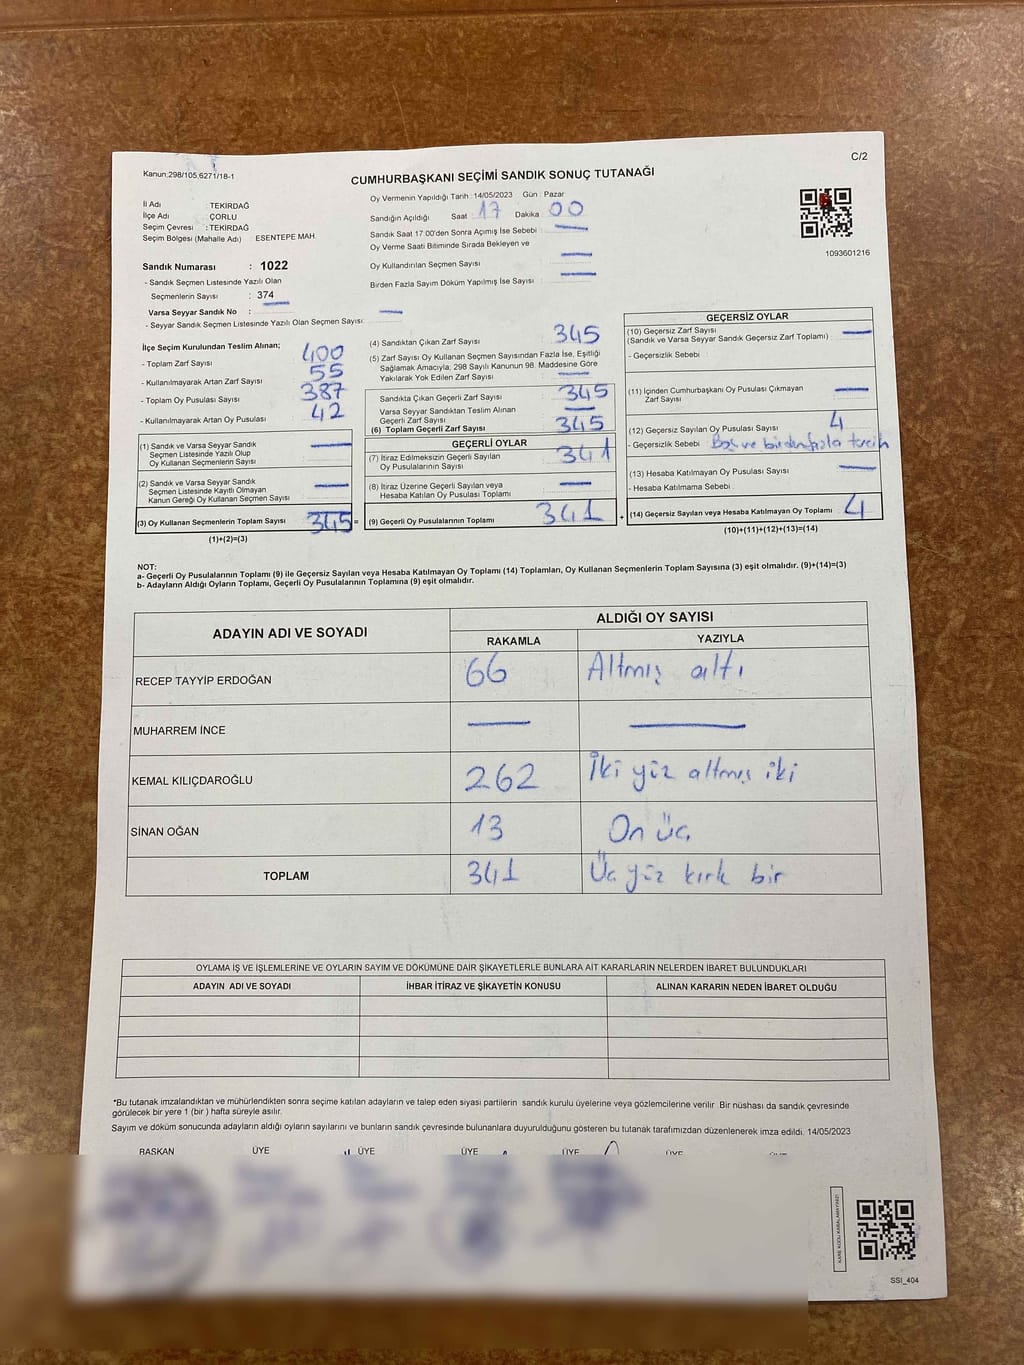 C/2
Kanun:298/105,6271/18-1
CUMHURBAŞKANI SEÇİMİ SANDIK SONUÇ TUTANAĞI
İl Adı : TEKİRDAĞ
İlçe Adı : ÇORLU
Seçim Çevresi : TEKİRDAĞ
Seçim Bölgesi (Mahalle Adı) ESENTEPE MAH.
Sandık Numarası : 1022
- Sandık Seçmen Listesinde Yazılı Olan
Seçmenlerin Sayısı : 374
Varsa Seyyar Sandık No :
- Seyyar Sandık Seçmen Listesinde Yazılı Olan Seçmen Sayısı:
Oy Vermenin Yapıldığı Tarih : 14/05/2023 Gün : Pazar
Sandığın Açıldığı Saat : 17 Dakika : 00
Sandık Saat 17:00'den Sonra Açımış İse Sebebi :
Oy Verme Saati Bitiminde Sırada Bekleyen ve
Oy Kullandırılan Seçmen Sayısı
Birden Fazla Sayım Döküm Yapılmış İse Sayısı :
1093601216
İlçe Seçim Kurulundan Teslim Alınan;
- Toplam Zarf Sayısı : 400
- Kullanılmayarak Artan Zarf Sayısı : 55
- Toplam Oy Pusulası Sayısı : 387
- Kullanılmayarak Artan Oy Pusulası : 42
(1) Sandık ve Varsa Seyyar Sandık
Seçmen Listesinde Yazılı Olup
Oy Kullanan Seçmenlerin Sayısı
(2) Sandık ve Varsa Seyyar Sandık
Seçmen Listesinde Kayıtlı Olmayan
Kanun Gereği Oy Kullanan Seçmen Sayısı
(3) Oy Kullanan Seçmenlerin Toplam Sayısı 345 =
(1)+(2)=(3)
(4) Sandıktan Çıkan Zarf Sayısı : 345
(5) Zarf Sayısı Oy Kullanan Seçmen Sayısından Fazla İse, Eşitliği
Sağlamak Amacıyla; 298 Sayılı Kanunun 98. Maddesine Göre
Yakılarak Yok Edilen Zarf Sayısı :
Sandıkta Çıkan Geçerli Zarf Sayısı : 345
Varsa Seyyar Sandıktan Teslim Alınan
Geçerli Zarf Sayısı :
(6) Toplam Geçerli Zarf Sayısı : 345
GEÇERLİ OYLAR
(7) İtiraz Edilmeksizin Geçerli Sayılan
Oy Pusulalarının Sayısı : 341
(8) İtiraz Üzerine Geçerli Sayılan veya
Hesaba Katılan Oy Pusulası Toplamı :
(9) Geçerli Oy Pusulalarının Toplamı : 341 +
GEÇERSİZ OYLAR
(10) Geçersiz Zarf Sayısı
(Sandık ve Varsa Seyyar Sandık Geçersiz Zarf Toplamı) :
- Geçersizlik Sebebi :
(11) İçinden Cumhurbaşkanı Oy Pusulası Çıkmayan
Zarf Sayısı :
(12) Geçersiz Sayılan Oy Pusulası Sayısı : 4
- Geçersizlik Sebebi : Boş ve birden fazla tercih
(13) Hesaba Katılmayan Oy Pusulası Sayısı :
- Hesaba Katılmama Sebebi :
(14) Geçersiz Sayılan veya Hesaba Katılmayan Oy Toplamı : 4
(10)+(11)+(12)+(13)=(14)
NOT:
a- Geçerli Oy Pusulalarının Toplamı (9) ile Geçersiz Sayılan veya Hesaba Katılmayan Oy Toplamı (14) Toplamları, Oy Kullanan Seçmenlerin Toplam Sayısına (3) eşit olmalıdır. (9)+(14)=(3)
b- Adayların Aldığı Oyların Toplamı, Geçerli Oy Pusulalarının Toplamına (9) eşit olmalıdır.
ADAYIN ADI VE SOYADI ALDIĞI OY SAYISI
RAKAMLA YAZIYLA
RECEP TAYYİP ERDOĞAN 66 Altmış altı
MUHARREM İNCE
KEMAL KILIÇDAROĞLU 262 İki yüz altmış iki
SİNAN OĞAN 13 On üç
TOPLAM 341 Üç yüz kırk bir
OYLAMA İŞ VE İŞLEMLERİNE VE OYLARIN SAYIM VE DÖKÜMÜNE DAİR ŞİKAYETLERLE BUNLARA AİT KARARLARIN NELERDEN İBARET BULUNDUKLARI
ADAYIN ADI VE SOYADI İHBAR İTİRAZ VE ŞİKAYETİN KONUSU ALINAN KARARIN NEDEN İBARET OLDUĞU
*Bu tutanak imzalandıktan ve mühürlendikten sonra seçime katılan adayların ve talep eden siyasi partilerin sandık kurulu üyelerine veya gözlemcilerine verilir. Bir nüshası da sandık çevresinde
görülecek bir yere 1 (bir ) hafta süreyle asılır.
Sayım ve döküm sonucunda adayların aldığı oyların sayılarını ve bunların sandık çevresinde bulunanlara duyurulduğunu gösteren bu tutanak tarafımızdan düzenlenerek imza edildi. 14/05/2023
BAŞKAN ÜYE ÜYE ÜYE ÜYE ÜYE
SSI_404